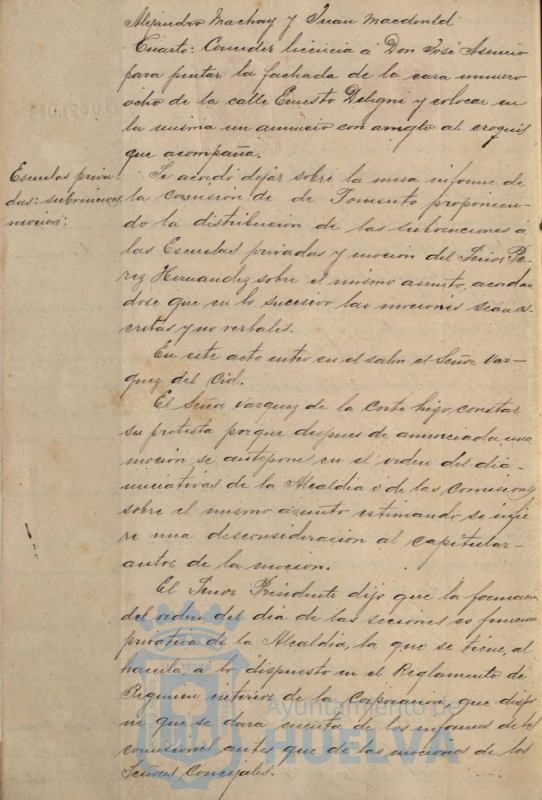 Alejandro Machay y Juan Macdonld
Cuarto: Conceder licencia á Don José Asencio
para pintar la fachada de la casa numero
ocho de la calle Ernesto Deligni y colocar en
la misma un anuncio con arreglo al croquis
que acompaña.
Escuelas priva
das: subvenciones
mocion:
Se acordó dejar sobre la mesa informe de
la comision de de Fomento proponien-
do la distribucion de las subvenciones á
las Escuelas privadas y mocion del Señor Pe-
rez Hernandez sobre el mismo asunto, acordan
dose que en lo sucesivo las mociones sean es
critas y no verbales.
En este acto entro en el salon el Señor Vaz-
quez del Cid.
El Señor Vazquez de la Corte hizo constar
su protesta porque despues de anunciada una
mocion se antepone en el orden del dia
iniciativas de la Alcaldia ó de las Comisiones
sobre el mismo asunto estimando se infie
re una desconsideracion al capitular
autor de la mocion.
El Señor Presidente dijo que la formacion
del orden del dia de las secciones es funcion
privativa de la Alcaldia, la que se tiene, al
hacerla, a lo dispuesto en el Reglamento de
Regimen interior de la Corporacion, que dispo
ne que se dara cuenta de los informes de las
comisiones antes que de las mociones de los
Señores Concejales.
Ayuntamiento de
HUELVA